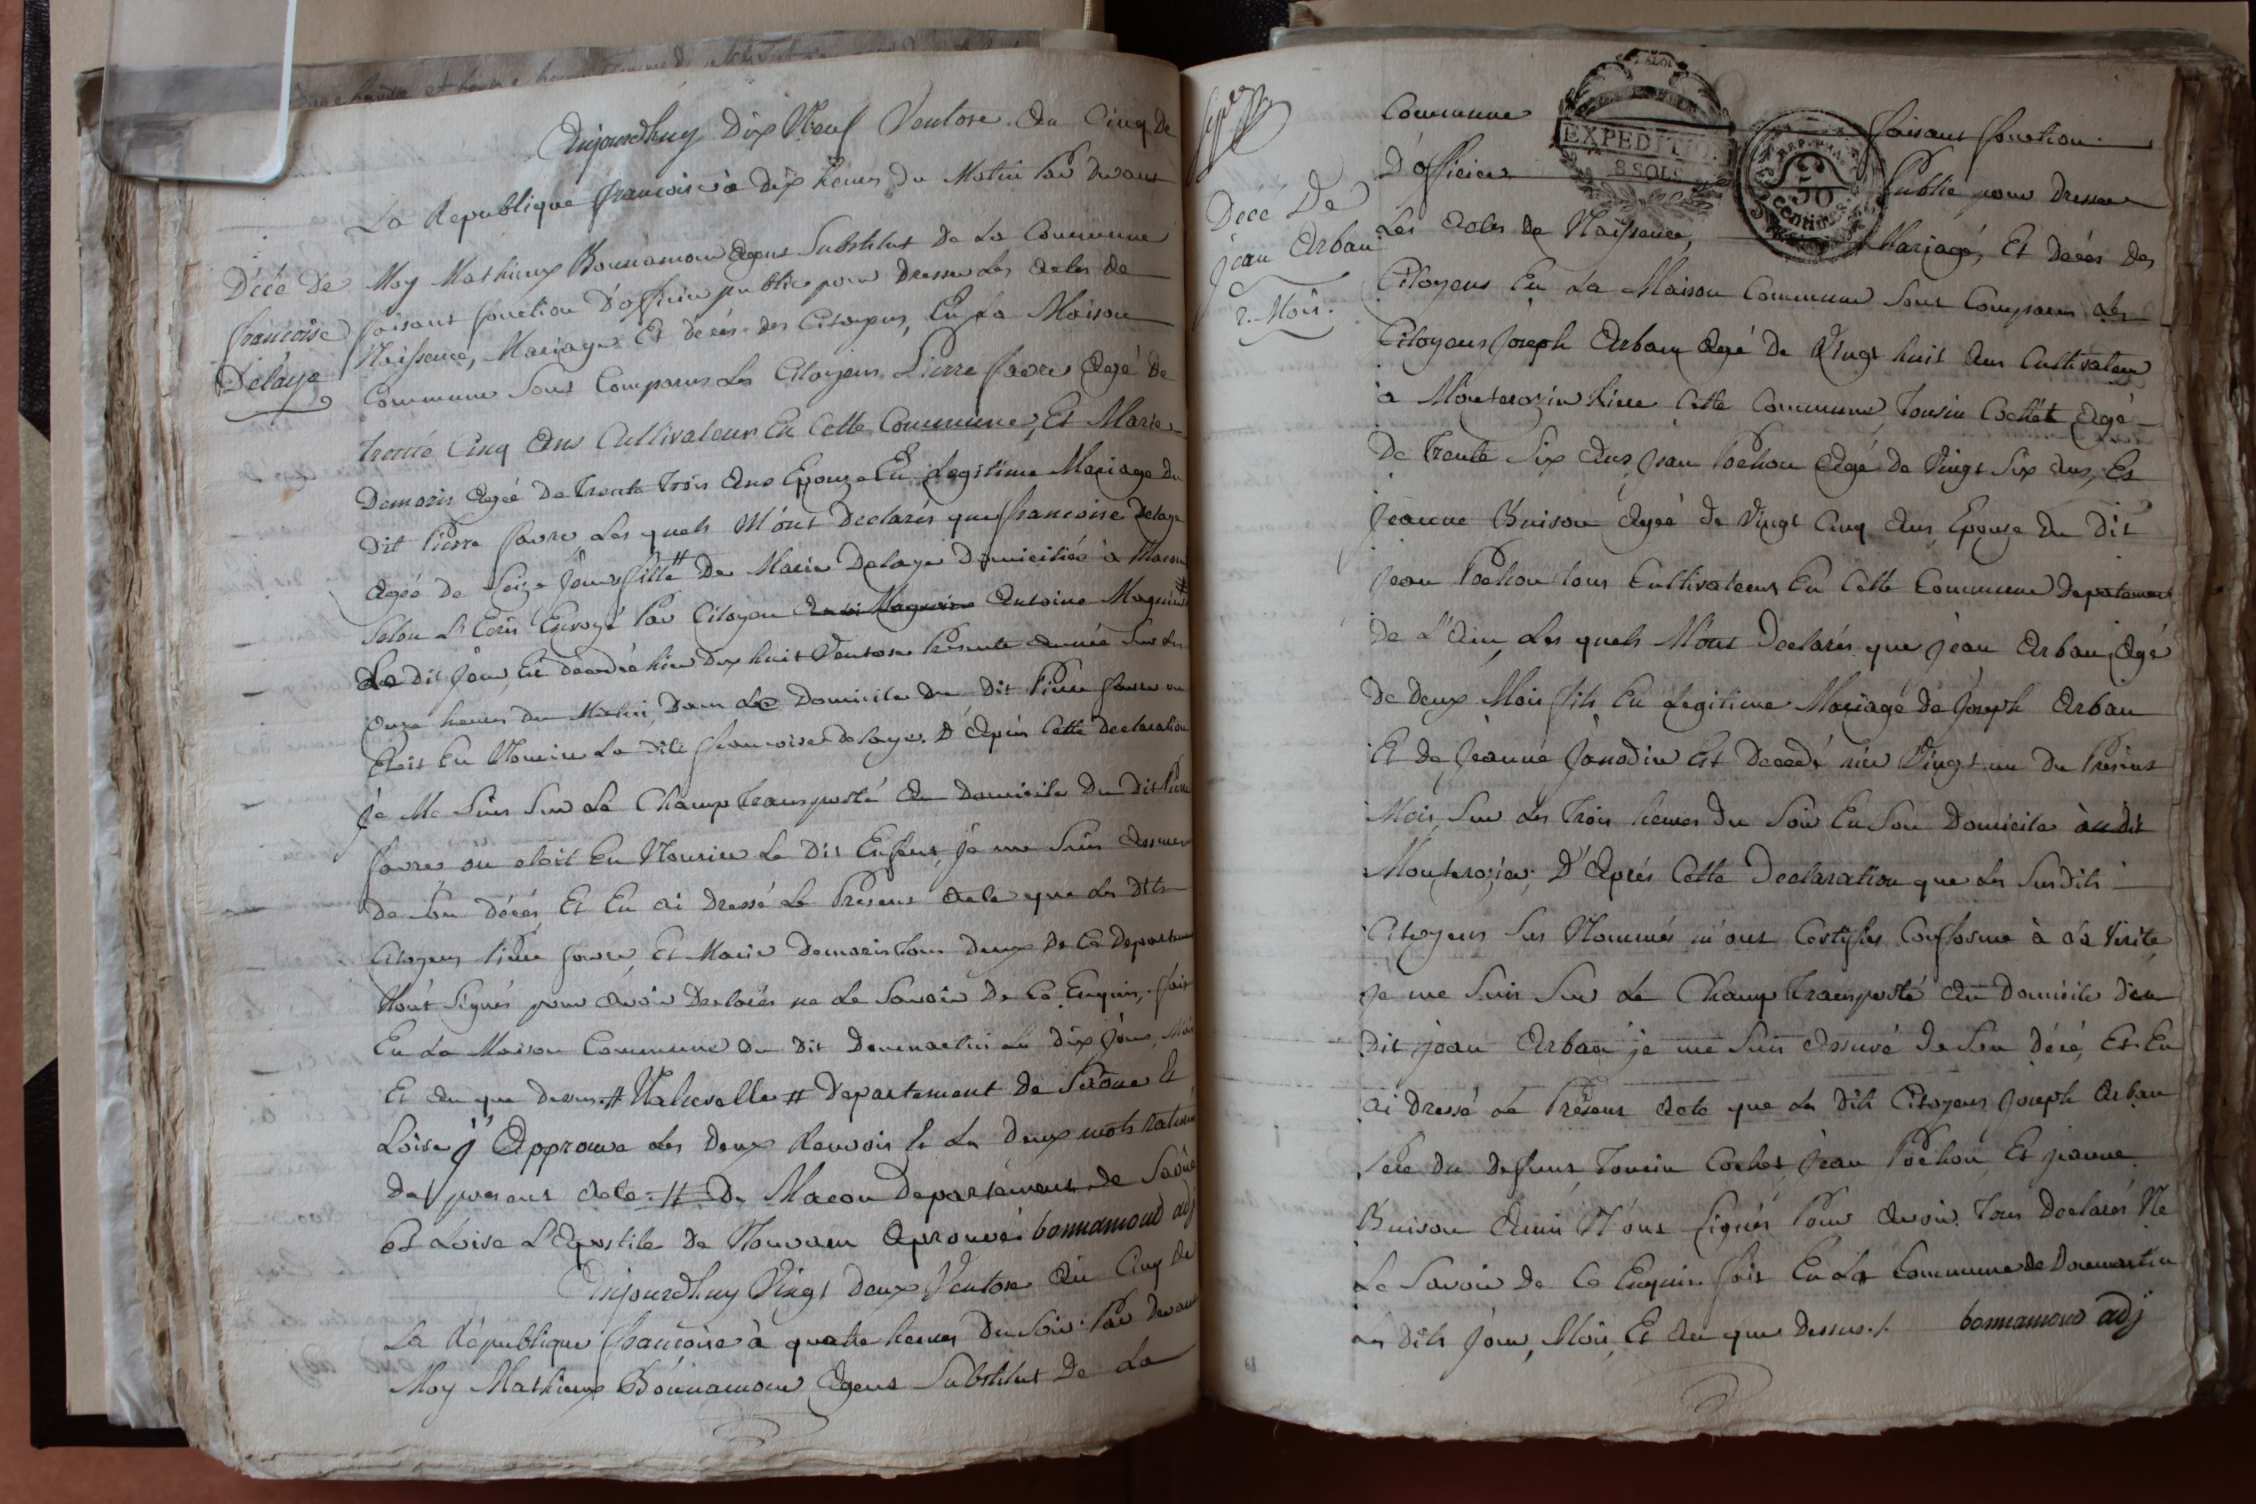 Aujourdhuy Dix Neuf Ventose An Cinq De
La Republique francoise à dix heures du Matin Par devant
Décé de
francoise
Delaye
Moy Mathieux Bonnamour Agent Substitut De La Commune
faisant fonction D'officier public pour dresser Les Actes de
Naissence, Mariages Et décés des Citoyens, En La Maison
Commune Sont Comparus Les Citoyens Pierre favre Agé De
trente Cinq Ans Cultivateur En Cette Commune, Et Marie
Demoris Agée De Trente Trois Ans Epouze En Legitime Mariage du
dit Pierre favre Les quels M'ont Declarés que francoise Delaye
Agée de Seize Jours fille # De Marie Delaye Domiciliée à Macon
Selon L'Ecris Envoyé Par Citoyen Antoine
Le dit Jour, Est décédée hier dix huit Ventose Présente Année Sur Les
onze heures du Matin Dans Le Domicile du dit Pierre favre ou
Etoit En Nourice La dite francoise delaye. D'Après Cette declaration
Je Me Suis Sur Le Champ Transporté Au Domicile Du Dit Pierre
favre ou etoit En Nourice Le Dit Enfant, Je me Suis Assurer
De Son décés Et En Ai Dressé Le Présent Acte que Les Dits
Citoyens Pierre favre, Et Marie Demoris Tous deux De Ce Departement
N'ont Signés pour Avoir Declarés ne Le Savoir De Ce Enquis, fait
En La Maison Commune du dit Dommartin Les Dix Jour, Mois
Et An que dessus. # Naturelle # Departement de Saone Et
Loire J'Approuve Les Deux Renvois Et Les Deux mots raturés
du present Acte. # De Macon Departement de Saône
Et Loire L'Apostile de Nouveau Aprouvé bonnamour adj
Aujourdhuy Vingt Deux Ventose An Cinq De
La République francoise à quatre heures Du Soir Par Devant
Moy Mathieux Bonnamour Agent Substitut De La
Décé De
Jean Arban
2. Mois.
Commune faisant fonction
EXPEDITION
8 SOLS
50
Centimes
D'officier Public pour Dresser
Les Actes De Naissance, Mariagé, Et Décés Des
Citoyens En La Maison Commune Sont Comparus Les
Citoyens Joseph Arban Agé De Vingt huit Ans Cultivateur
à Monterozin Riere Cette Commune, Tousin Cochet Agé
De Trente Six Ans, Jean Pochon Agé De Vingt Six Ans, Et
Jeanne Buison Agée De Vingt Cinq Ans, Epouze Du Dit
Jean Pochon tous Cultivateurs En Cette Commune Departement
De L'Ain, Les quels M'ont Declarés que Jean Arban, Agé
De Deux Mois fils En Legitime Mariagé De Joseph Arban
Et De Jeanne Janodin Est Decedé hier Vingt un Du Présent
Mois, Sur Les Trois heures Du Soir En Son Domicile au dit
Monterozin; D'Après Cette Declaration que Les Susdits
Citoyens Sus Nommés m'ont Certifies Conforme à La Vérité
Je me Suis Sur Le Champ Transporté Au Domicile Deu
Dit Jean Arban je me Suis Assuré De Son Décé, Et En
Ai Dressé Le Présent Acte que Les Dits Citoyens Joseph Arban
Pere du Defunt Tousin Cochet, Jean Pochon Et Jeanne
Buison Amis N'ont Signés Pour Avoir Tous Declarés Ne
Le Savoir De Ce Enquis. fait En La Commune de Dommartin
Les Dits Jour, Mois, Et An que Dessus./. bonnamour adj